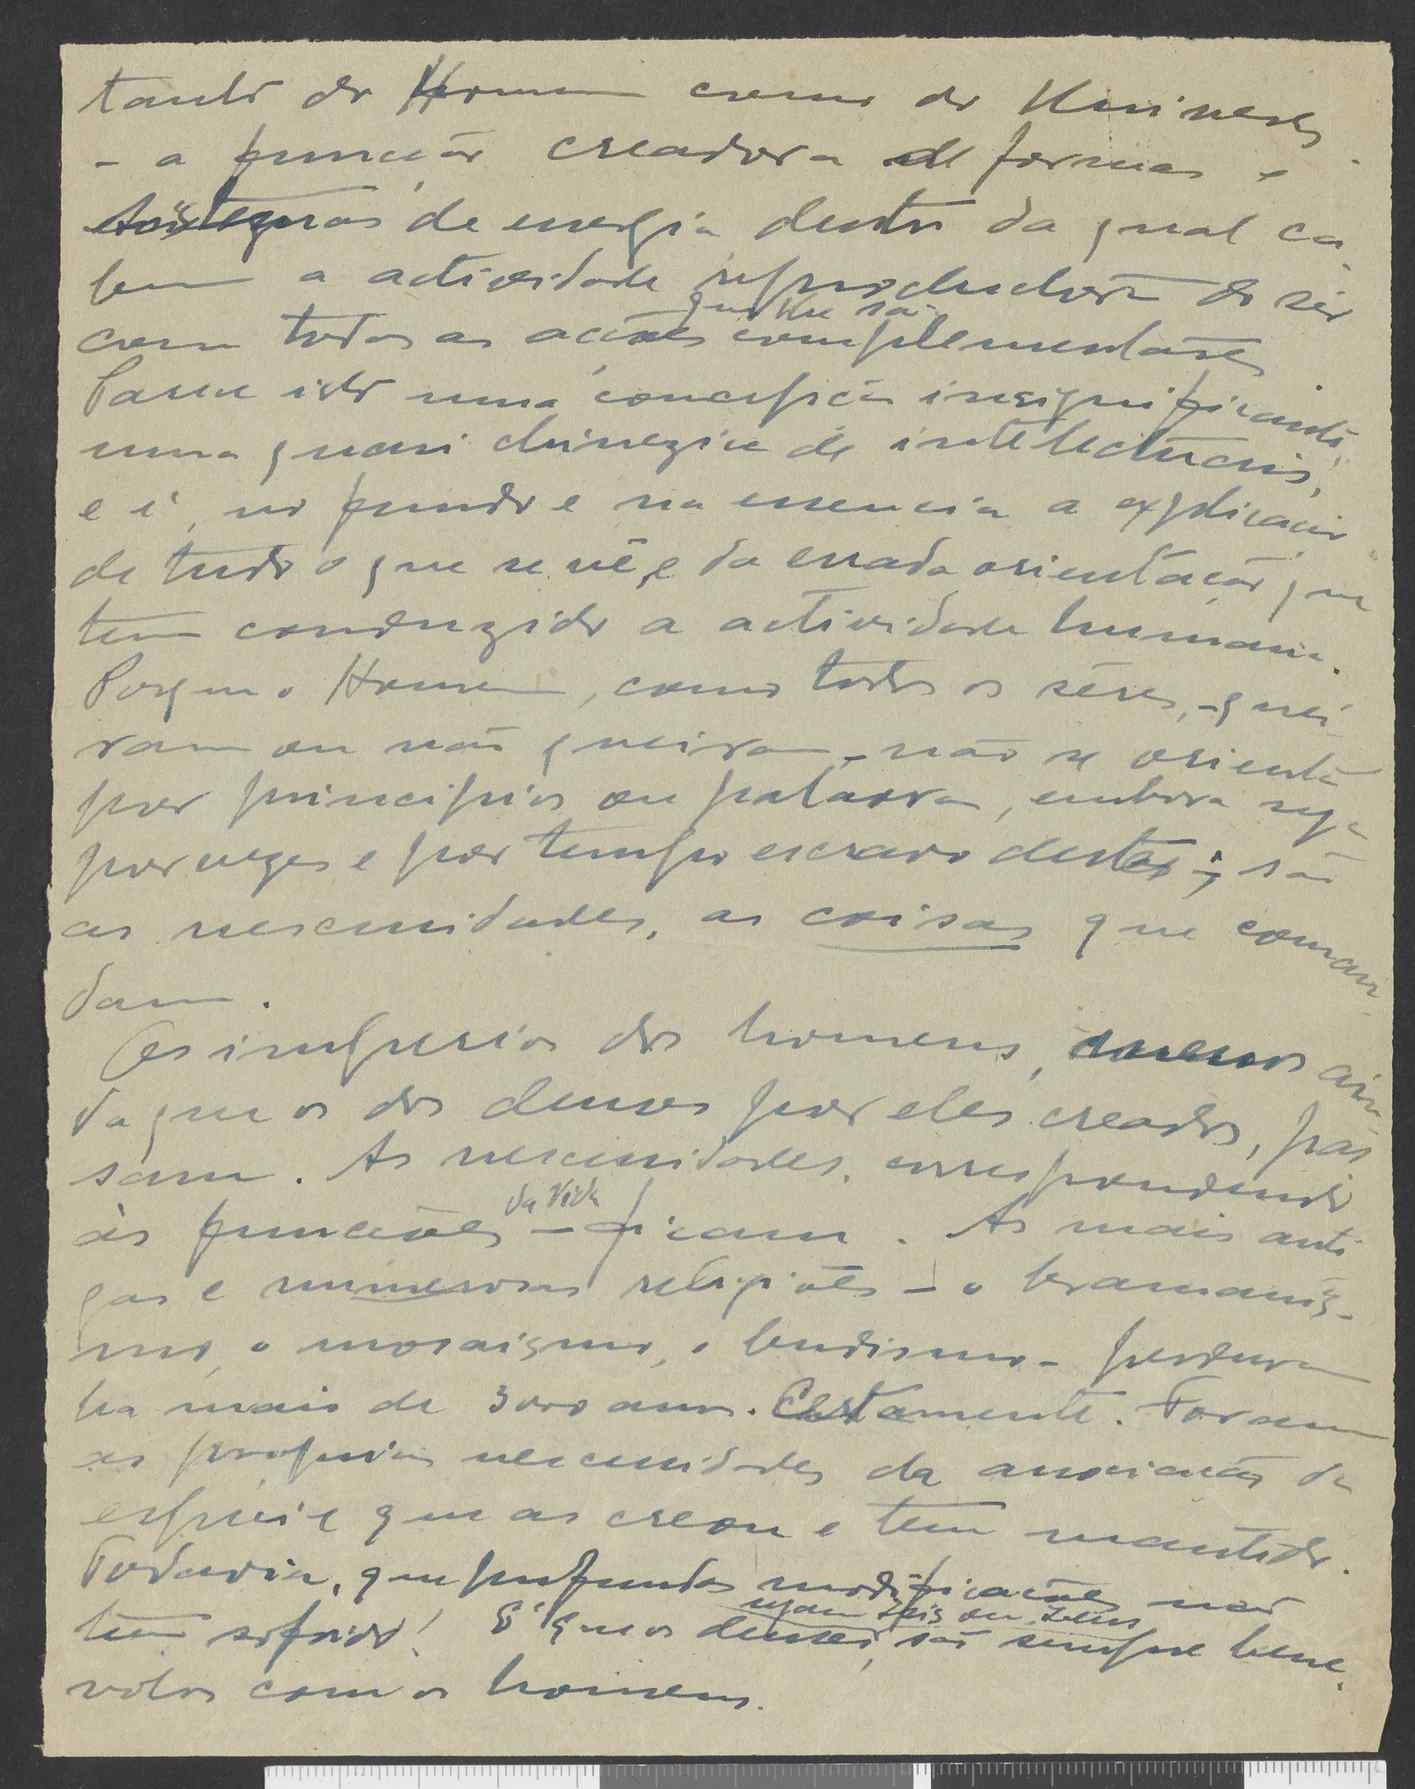 tanto do Homem como do Universo
- a função creadora de formas e
sistemas de energia dentro da qual ca-
bem a actividade reproductora do sêr
que lhe são
com todas as acções complementares
Parece isto uma concepção insignificante,
uma quasi chinezice de intelectuais,
e é, no fundo e na essencia a explicação
de tudo o que se vê, e da errada orientação que
tem conduzido a actividade humana.
Porque o Homem, como todos os sêres, - quei-
ram ou não queiram - não se orienta
por principios ou palavras, embora seja
por vezes e por tempo escravo destes; são
as necessidades, as coisas que coman-
dam.
Os imperios dos homens, menos ain-
da que os dos deuses por eles creados, pas-
sam. As necessidades, correspondendo
da Vida
às funcções - ficam. As mais anti-
gas e numerosas religiões - o bramanis-
mo, o mosaismo, o budismo - perduram
ha mais de 3000 anos. Certamente. Foram
as proprias necessidades da associação da
espécie que as creou e tem mantido.
Todavia, que profundas modificações não
sejam Isis ou Zeus
têm sofrido! É que os deuses, são sempre bene-
volos com os homens.